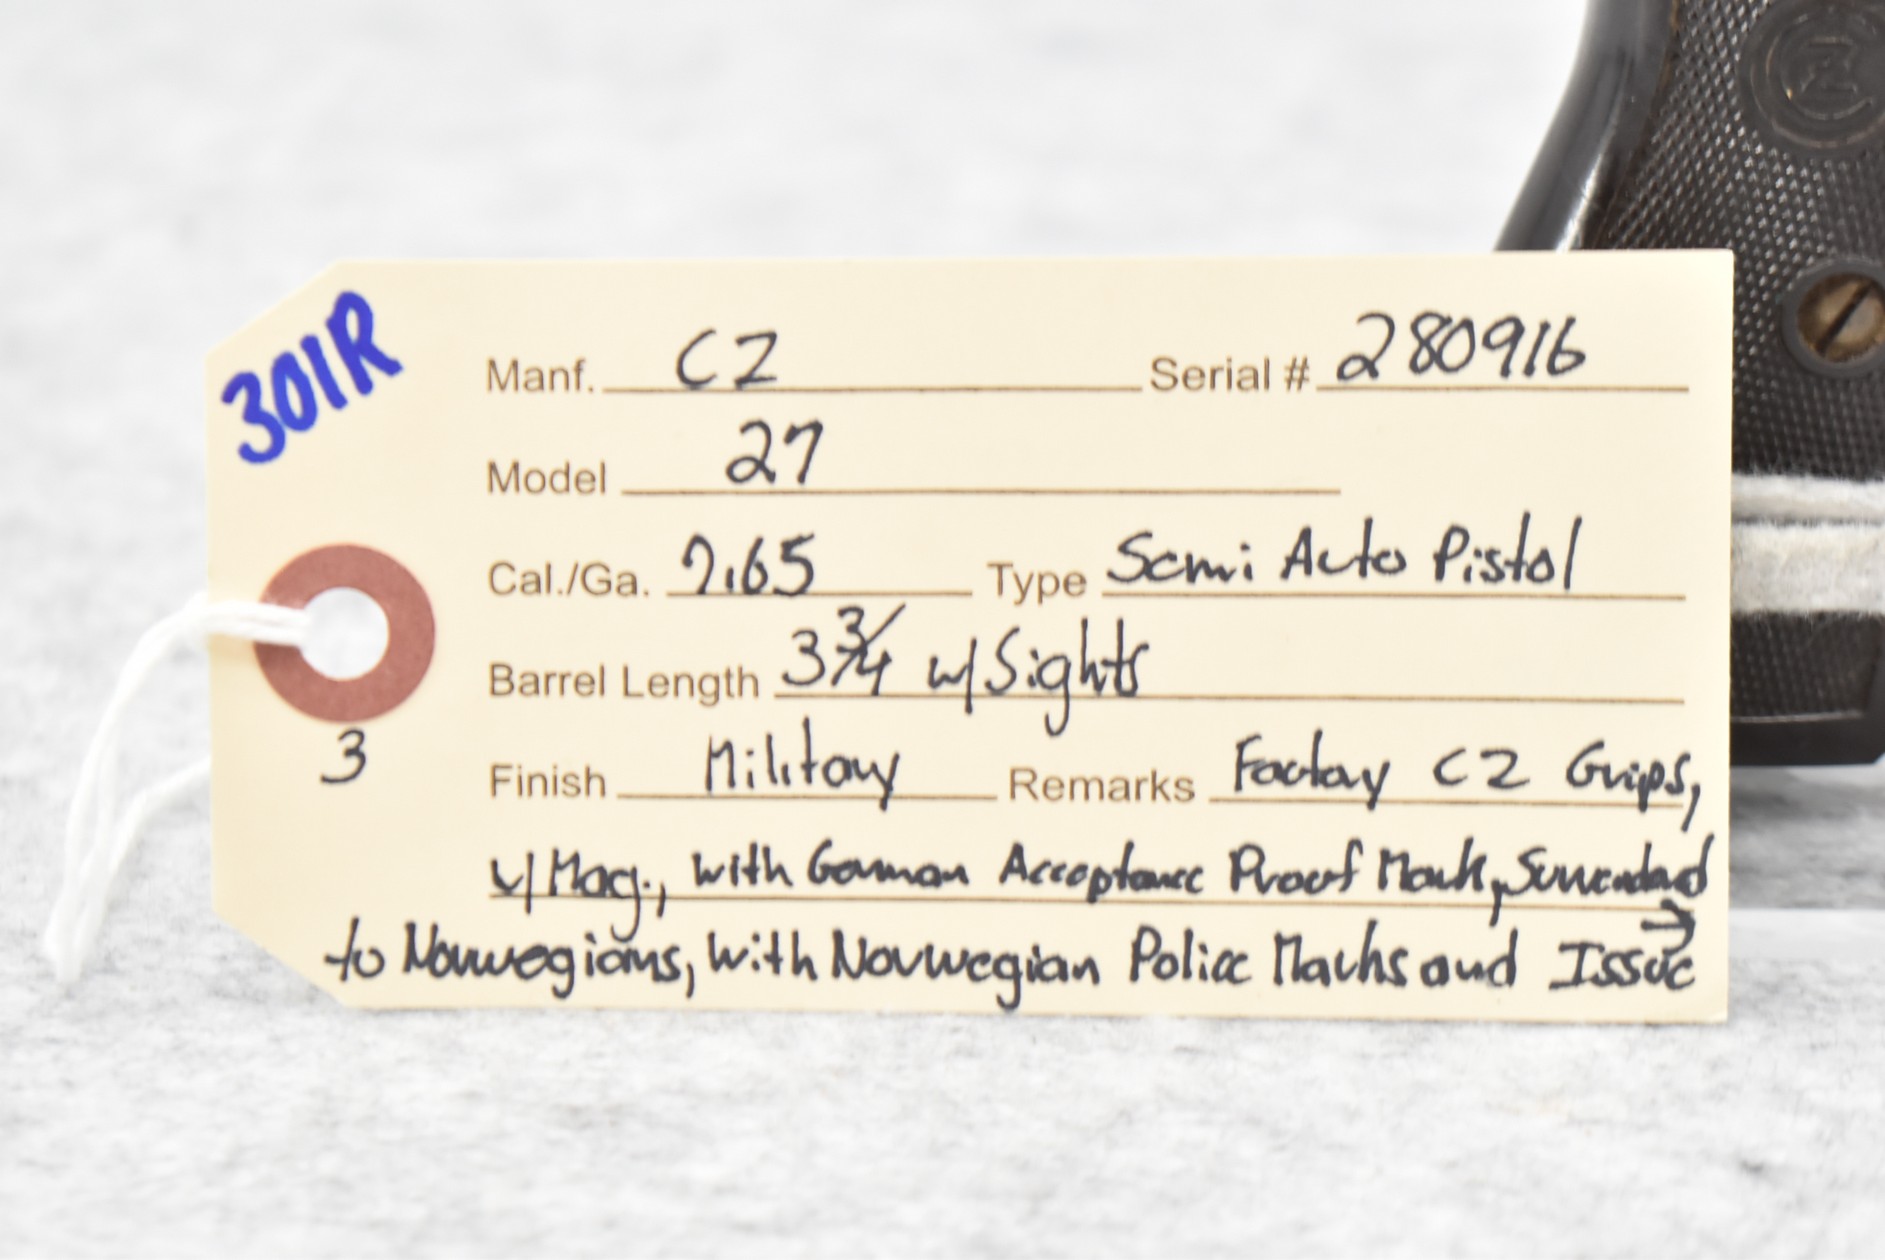 301R
Manf. CZ Serial # 280916
Model 27
Cal./Ga. 7.65 Type Semi Auto Pistol
Barrel Length 3 3/4 w/Sights
3
Finish Military Remarks Factory CZ Grips,
w/Mag., with German Acceptance Proof Mark, Surrendard
to Norwegians, With Norwegian Police Marks and Issue →
CZ